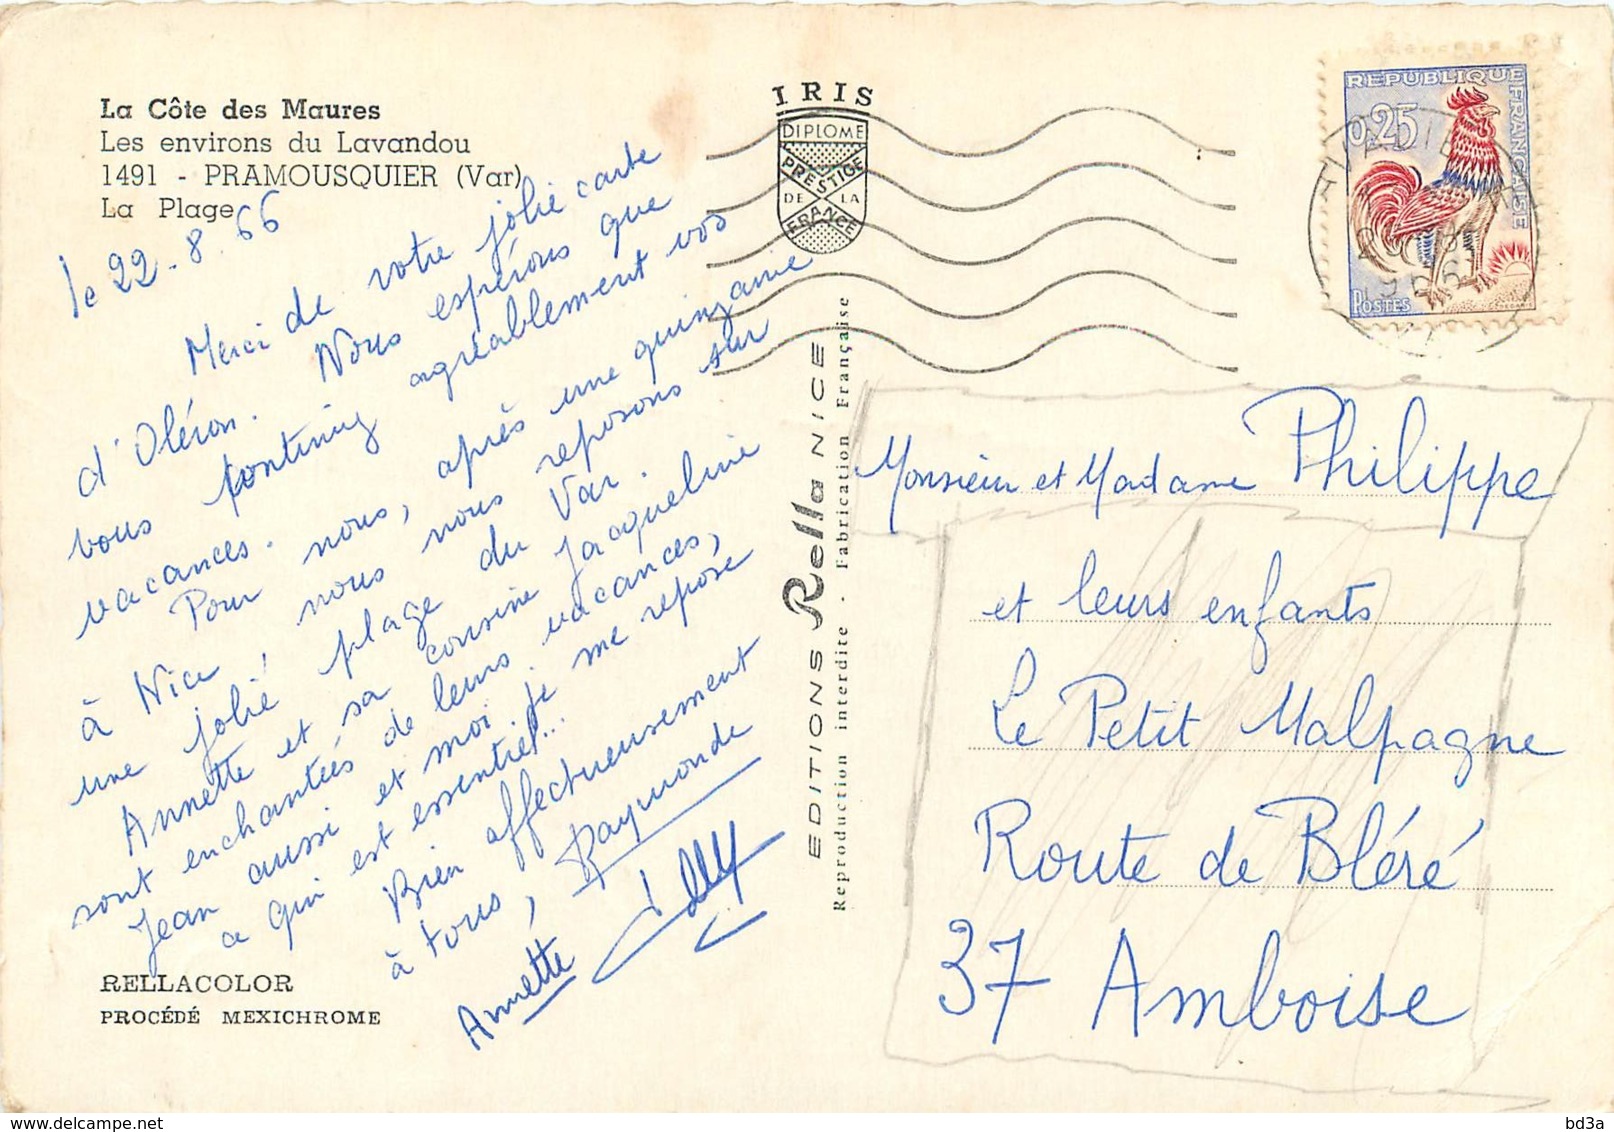 La Côte des Maures
Les environs du Lavandou
1491 - PRAMOUSQUIER (Var)
La Plage
le 22.8.66
Merci de votre jolie carte
d'Oléron. Nous espérons que
vous continuez agréablement vos
vacances.
Pour nous, après une quinzaine
à Nice, nous nous reposons sur
une jolie plage du Var.
Annette et sa cousine Jacqueline
sont enchantées de leurs vacances,
Jean aussi et moi je me repose
ce qui est essentiel...
Bien affectueusement
à tous, Raymonde
Annette
RELLACOLOR
PROCÉDÉ MEXICHROME
IRIS
DIPLOME
PRESTIGE
DE LA
FRANCE
EDITIONS Rella NICE
Reproduction interdite - Fabrication Française
REPUBLIQUE FRANÇAISE
0,25
POSTES
Monsieur et Madame Philippe
et leurs enfants
Le Petit Malpagne
Route de Bléré
37 Amboise
bd3a